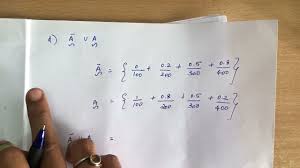 Ā ∪ A
Ā = { 0/100 + 0.2/200 + 0.5/300 + 0.8/400 }
A = { 1/100 + 0.8/200 + 0.5/300 + 0.2/400 }
=